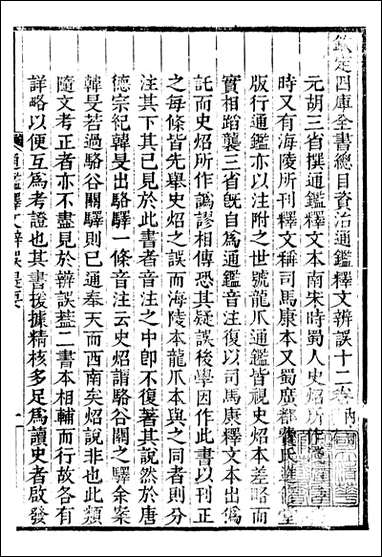 欽定四庫全書總目資治通鑑釋文辨誤十二卷內
元胡三省撰通鑑釋文本南宋時蜀人史炤所作
時又有海陵所刊釋文稱司馬康本又蜀廣都費氏進修堂
版行通鑑亦以注附之世號龍爪通鑑皆視史炤本差略而
實相蹈襲三省旣自爲通鑑音注復以司馬康釋文本出僞
託而史炤所作譌謬相傳恐其疑誤後學因作此書以刊正
之每條皆先舉史炤之誤而海陵本龍爪本與之同者則分
注其下其已見於此書者音注之中卽不復著其說然於唐
德宗紀韓旻出駱谷驛一條音注云史炤謂駱谷關之驛余案
韓旻若過駱谷關驛則已通奉天而西南矣炤說非也此類
隨文考正者亦不盡見於辨誤葢二書本相輔而行故各有
詳略以便互爲考證也其書援據精核多足爲讀史者啟發
通鑑釋文辨誤提要 一